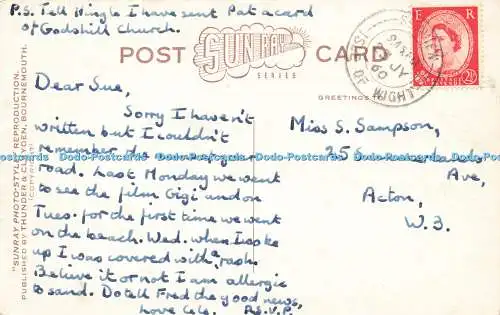 P.S. Tell Hingle I have sent Pat a card
of Godshill Church.
POST
SUNRAY
SERIES
CARD
GREETINGS
Dear Sue,
Sorry I haven't
written but I couldn't
remember the name of your
road. Last Monday we went
to see the film Gigi and on
Tues. for the first time we went
on the beach. Wed. when I woke
up I was covered with a rash.
Believe it or not I am allergic
to sand. Do tell Fred the good news,
Love
R.S.V.P.
Miss S. Sampson,
25
Ave,
Acton,
W.3.
E R
2½
ISLE OF WIGHT
JY
60
"SUNRAY PHOTO-STYLE" REPRODUCTION.
PUBLISHED BY THUNDER & CLAYDEN, BOURNEMOUTH.
(COPYRIGHT)
Dodo-Postcards Dodo-Postcards Dodo-Postcards Dodo-Postcards Dodo-Postcards Dodo-Postcards